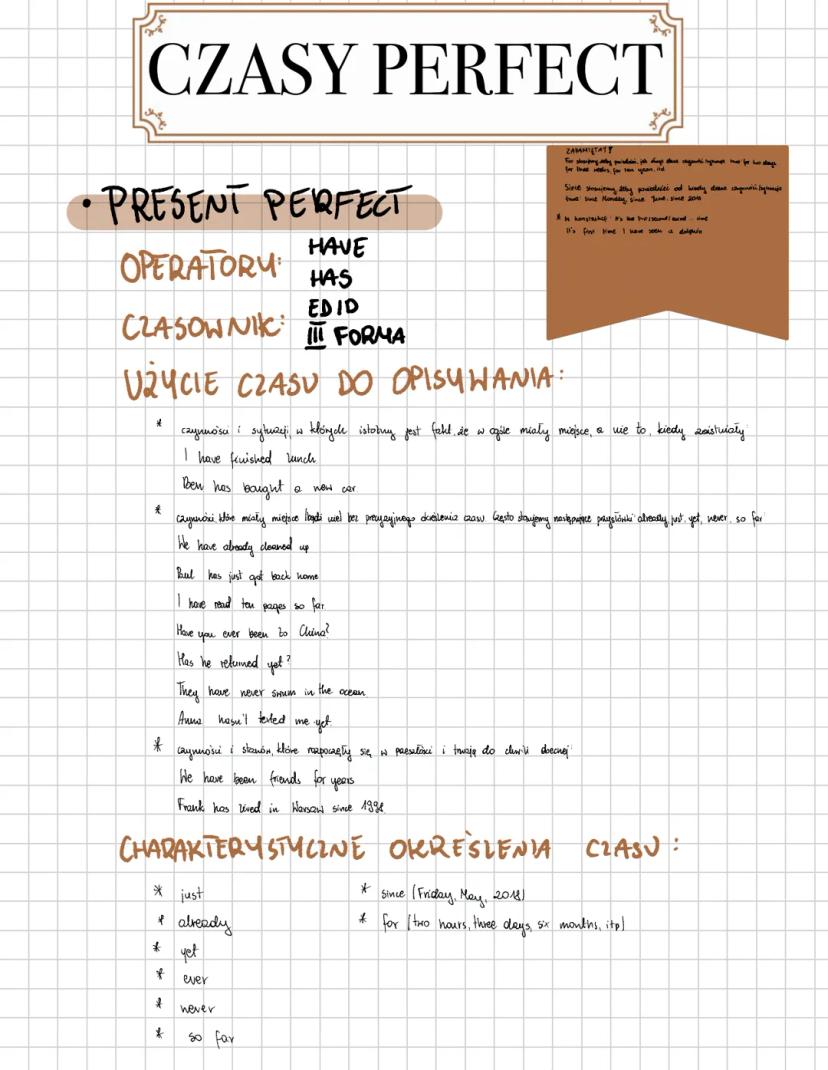 CZASY PERFECT
ZAPAMIĘTAJ!
For stosujemy, żeby powiedzieć, jak długo dana czynność trwa: for two days
for three weeks, for ten years, itd
Since stosujemy, żeby powiedzieć od kiedy dana czynność
trwa: since Monday, since June, since 2018
* W konstrukcji: It's the first/second/ time
It's first time I have seen a dolphin
• PRESENT PERFECT
OPERATORY: HAVE
HAS
CZASOWNIK: ED ID
III FORMA
UŻYCIE CZASU DO OPISYWANIA:
* czynności i sytuacji, w których istotny jest fakt, że w ogóle miały miejsce, a nie to, kiedy zaistniały
I have finished lunch
Ben has bought a new car
* czynności, które miały miejsce (bądź nie) bez precyzyjnego określenia czasu. Często stosujemy następujące przysłówki: already, just, yet, never, so far
We have already cleaned up
Paul has just got back home
I have read ten pages so far
Have you ever been to China?
Has he returned yet?
They have never swum in the ocean
Anna hasn't texted me yet
* czynności i stanów, które rozpoczęły się w przeszłości i trwają do chwili obecnej
We have been friends for years
Frank has lived in Warsaw since 1998
CHARAKTERYSTYCZNE OKREŚLENIA CZASU:
* just
* already
* yet
* ever
* never
* so far
* since (Friday, May, 2018)
* for (two hours, three days, six months, itp)